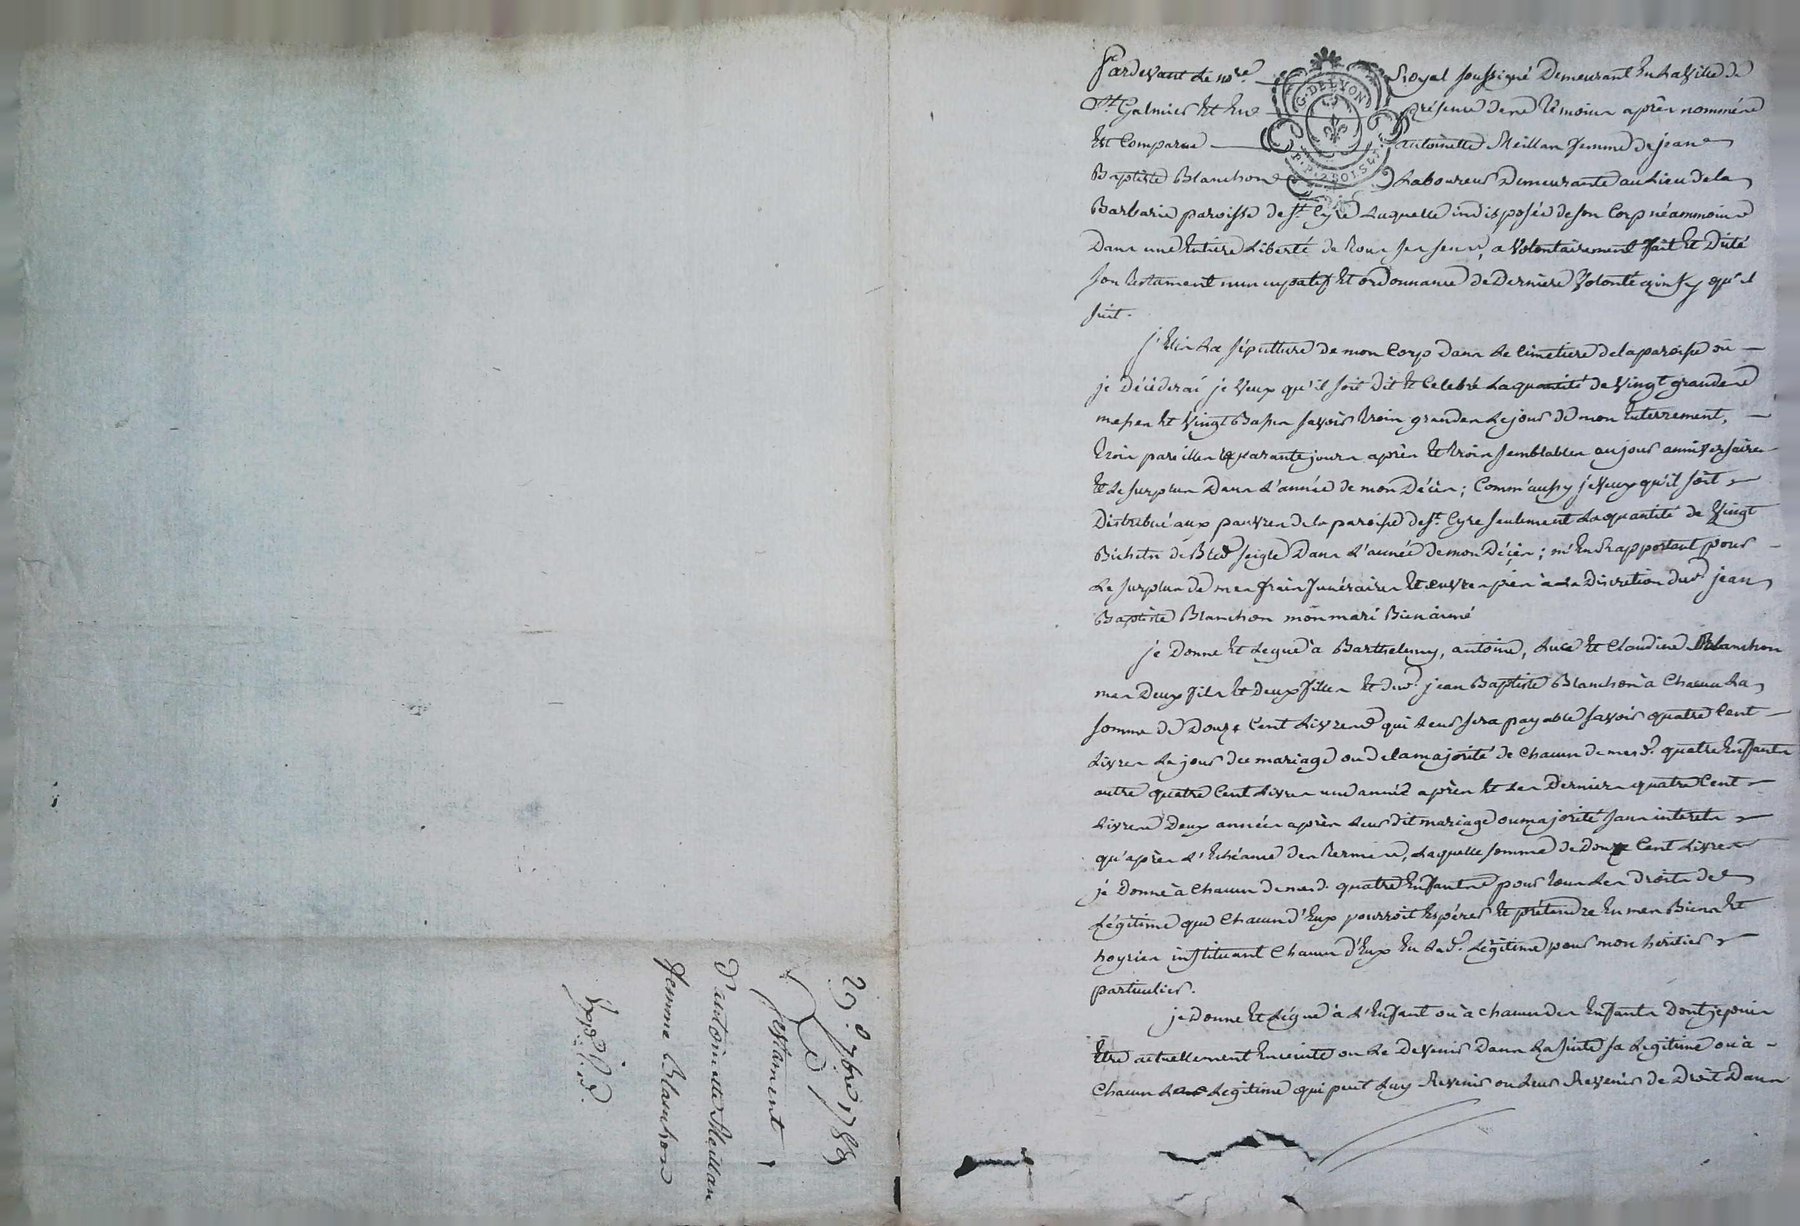 Pardevant Le no.re Royal soussigné Demeurant En La Ville de
St. Galmier Et En présence de ne témoins après nommés
Est Comparue antoinette Meillan femme de jean
Baptiste Blanchon Laboureur Demeurante au Lieu de la
Barbarie paroisse de St. Cyre Laquelle indisposée de son Corp néammoins
Dans une Entiere Liberté de tous ses sens, a Volontairement fait Et Dicté
son testament nuncupatif Et ordonnance de Derniere Volonté ainsy qu'il
suit.
j'Elis La sépulture de mon Corp dans Le Cimetiere de la paroisse où
je Décéderai je Veux qu'il soit Dit Et Celebré La quantité de Vingt grandes
messes Et Vingt Basses savoir trois grandes Le jour de mon Enterrement,
trois pareilles quarante jours après Et trois semblables au jour anniversaire
Et Le surplus Dans L'année de mon Décès; Comm'aussy je Veux qu'il soit
Distribué aux pauvres de la paroisse de St. Cyre seulement La quantité de Vingt
Bichets de Bled seigle Dans L'année de mon Décès; m'En Rapportant pour
Le surplus de mes frais funéraires Et œuvres pies à La Discretion dud. jean
Baptiste Blanchon mon mari Bien aimé
je Donne Et Legue à Barthelemy, antoine, Luce Et Claudine Blanchon
mes Deux fils Et Deux filles Et dud. jean Baptiste Blanchon à Chacun La
somme de Douze Cent Livres qui Leur sera payable savoir quatre Cent
Livres Le jour du mariage ou de la majorité de Chacun de mesd. quatre Enfants
autre quatre Cent Livres une année après Et Les Derniers quatre Cent
Livres Deux années après Leur dit mariage ou majorité sans interets
qu'après L'Echéance des termes, Laquelle somme de Douze Cent Livres
je Donne à Chacun de mesd. quatre Enfants pour tous Les droits de
Légitime que Chacun d'Eux pourroit Espérer Et prétendre En mes Biens Et
hoyrie instituant Chacun d'Eux En Lad. Légitime pour mon héritier
particulier.
je Donne Et Légue à L'Enfant ou à chacun des Enfants Dont je puis
Etre actuellement Enceinte ou Le Devenir Dans La suite sa Legitime ou à
Chacun Legitime qui peut Luy Revenir ou Leur Revenir de Droit Dans
G. DE LYON
P.P. 2 SOLS 4 D.
29 9bre 1789
Testament
d'antoinette Meillan
femme Blanchon
Expéd.